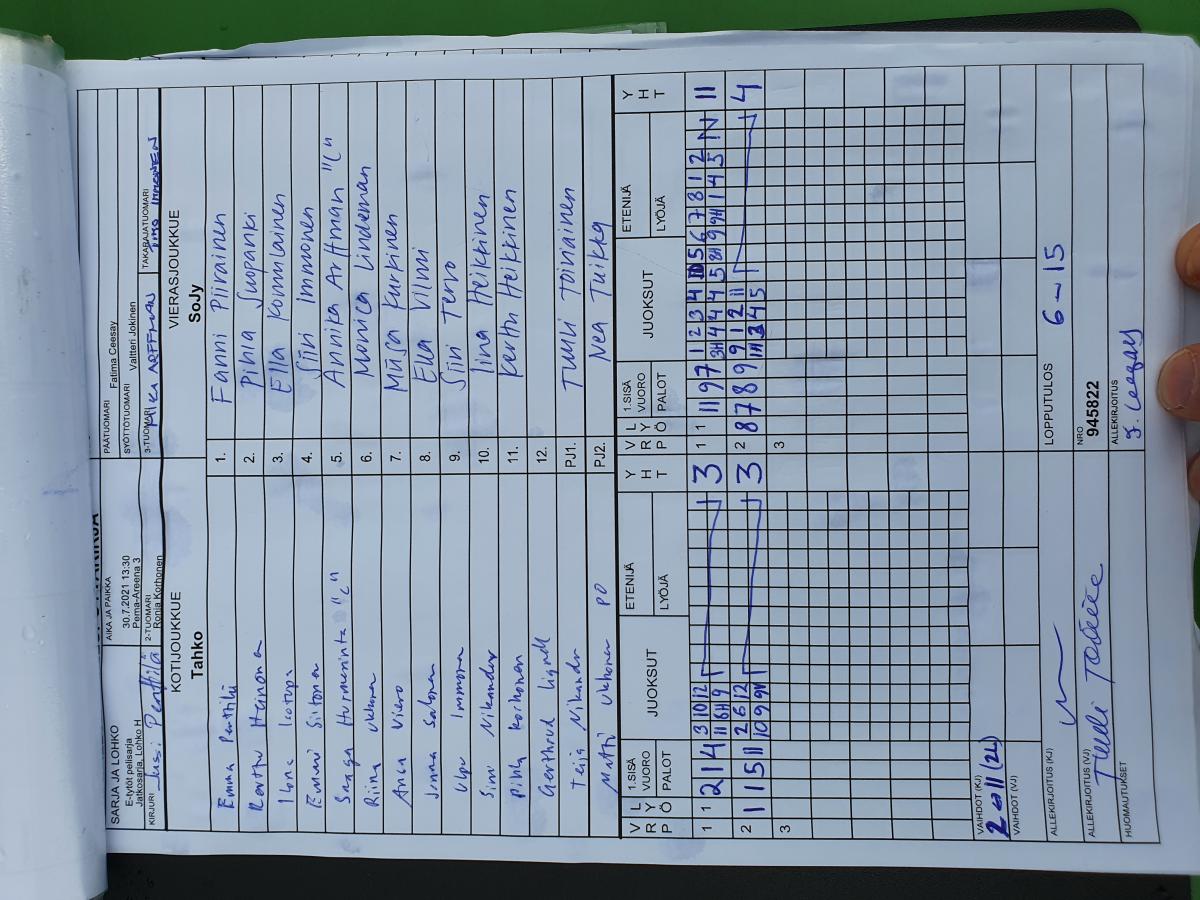 SARJA JA LOHKO
E-tytöt pelisarja
Jatkosarja, Lohko H
AIKA JA PAIKKA
30.7.2021 13:30
Pema-Areena 3
PÄÄTUOMARI Fatima Ceesay
SYÖTTÖTUOMARI Valtteri Jokinen
KIRJURI Jussi Penttilä
2-TUOMARI Ronja Korhonen
3-TUOMARI MIKA ARFFMAN
TAKARAJATUOMARI TIMO IMMONEN
KOTIJOUKKUE
Tahko
VIERASJOUKKUE
SoJy
Emma Penttilä 1. Fanni Piirainen
Kerttu Heinonen 2. Pihla Suopanki
Iona Isotupa 3. Ella Komulainen
Emmi Siltonen 4. Siiri Immonen
Saaga Hurmerinta "C" 5. Annika Arffman "C"
Riina Ukkonen 6. Monica Lindeman
Anna Viero 7. Miisa Kurkinen
Jonna Salonen 8. Ella Vilmi
Immonen 9. Siiri Tervo
Sini Nikander 10. Iina Heikkinen
Pihla Korhonen 11. Kerttu Heikkinen
Gerthrud Lignell 12.
Teija Nikander PJ1. Tuuli Toiviainen
Matti Ukkonen PO PJ2. Nea Tuikka
V R P L Y Ö 1.SISÄ VUORO PALOT JUOKSUT ETENIJÄ LYÖJÄ Y H T
V R P L Y Ö 1.SISÄ VUORO PALOT JUOKSUT ETENIJÄ LYÖJÄ Y H T
1 1 2 1 4 3 10 12 3
11 6H 9
1 1 11 9 7 1 2 3 4 10 5 6 7 8 1 2 11
3H 4 4 4 5 8H 9 9H 1 4 5
2 1 1 5 11 2 6 12 3
10 9 9H
2 8 7 8 9 9 1 2 11 4
3
3
VAIHDOT (KJ) 2-11 (2L)
VAIHDOT (VJ)
ALLEKIRJOITUS (KJ)
LOPPUTULOS 6-15
ALLEKIRJOITUS (VJ)
NRO
945822
HUOMAUTUKSET
ALLEKIRJOITUS
F. Ceesay